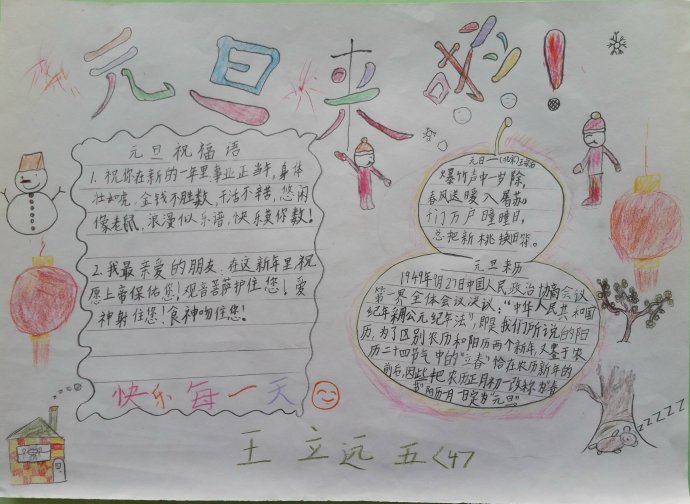 元旦来啦!
元旦祝福语
1.祝你在新的一年里事业正当午,身体
壮如虎,金钱不胜数,干活不辛苦,悠闲
像老鼠,浪漫似乐谱,快乐莫你数!
2.我最亲爱的朋友.在这新年里祝
原上帝保佑您!观音菩萨护住您!爱
神射住您!食神吻住您!
快乐每一天
元日——(北宋)王安石
爆竹声中一岁除,
春风送暖入屠苏。
千门万户曈曈日,
总把新桃换旧符。
元旦来历
1949年9月27日中国人民政治协商会议
第一界全体会议决议:"中华人民共和国
纪年采用公元纪年法",即是我们所说的阳
历,为了区别农历和阳历两个新年,又鉴于农
历二十四节气中的"立春"恰在农历新年的
前后,因此把农历正月初一改称为"春
节"阳历一月一日定为"元旦"
zzzzz
王立远 五<4>